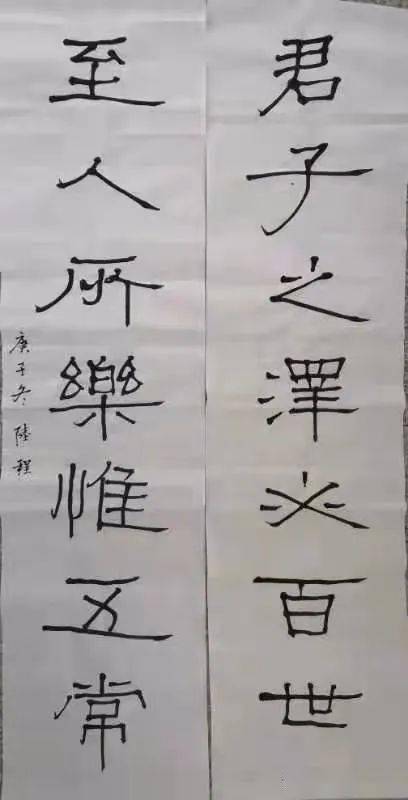 君子之澤必百世
至人所樂惟五常
庚子冬陸程